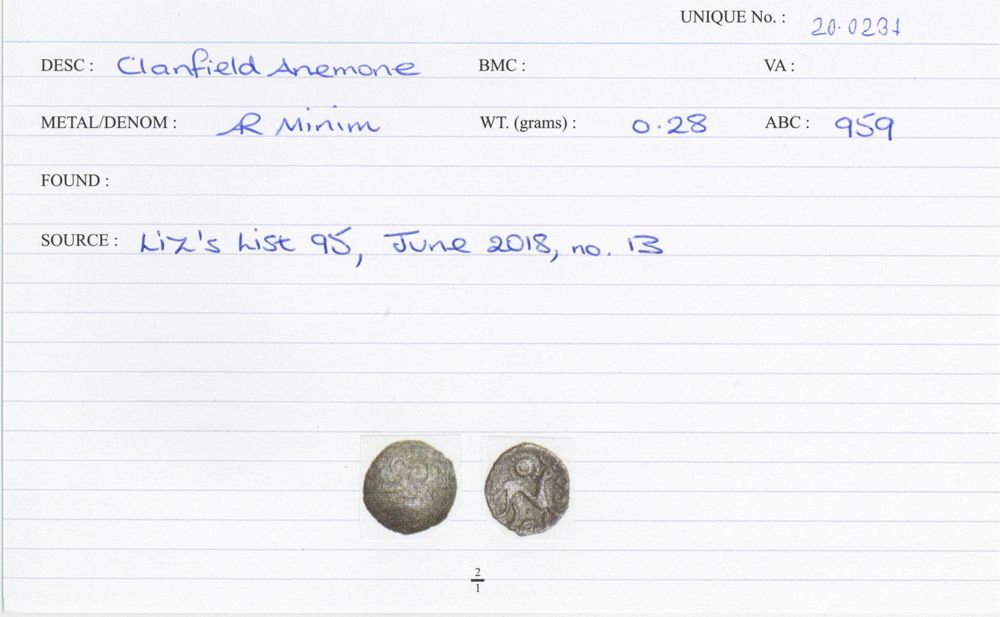 UNIQUE No. : 20.0231
DESC : Clanfield Anemone BMC : VA :
METAL/DENOM : AR Minim WT. (grams) : 0.28 ABC : 959
FOUND :
SOURCE : Liz's List 95, June 2018, no. 13
2
1